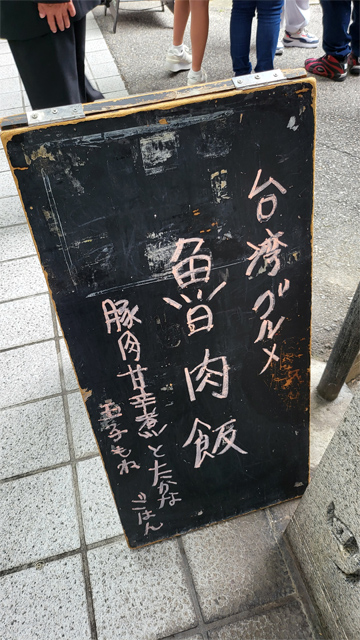 台湾グルメ
魯肉飯
豚肉甘辛煮とたかな
ごはん
玉子もね